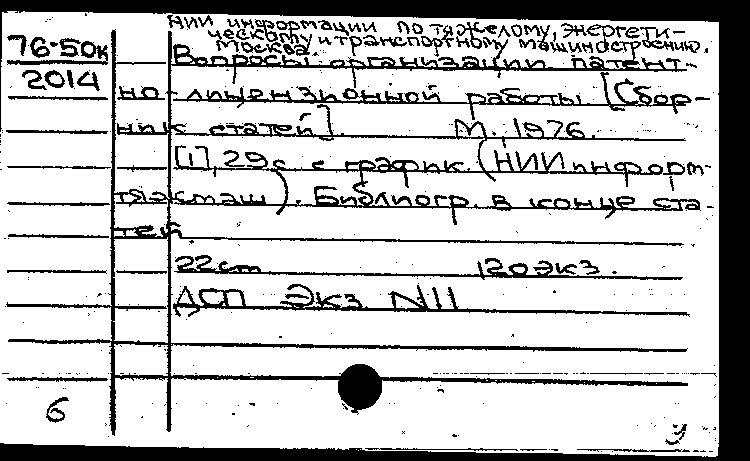 НИИ информации по тяжелому, энергети-
ческому и транспортному машиностроению.
Москва.
76-50к
2014
Вопросы организации патент-
но-лицензионной работы [Сбор-
ник статей]. М., 1976.
[1], 29 с с график. (НИИинформ-
тяжмаш). Библиогр. в конце ста-
тей
22 cm 120 экз.
ДСП Экз N11
6
У